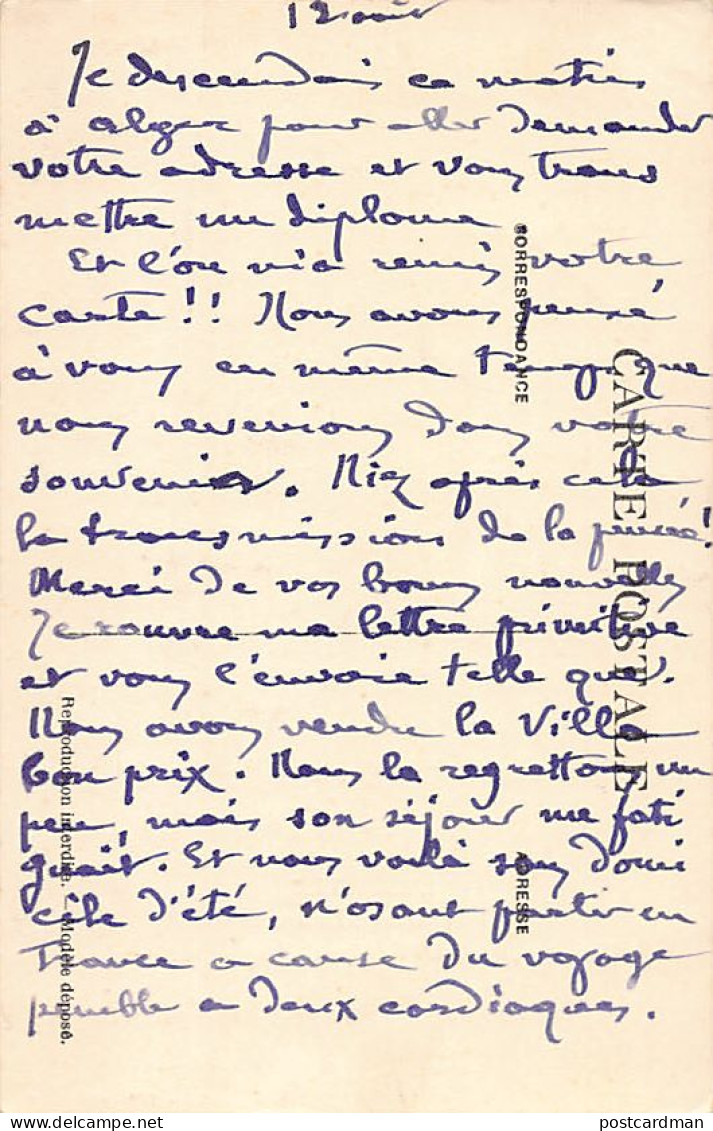 12 août
Je descendais ce matin
à Alger pour aller demander
votre adresse et vous trans
mettre un diplome
Et l'on m'a remis votre
carte!! Nous avons pensé
à vous en même temps que
nous revenions dans votre
souvenir. Niez après cela
la transmission de la pensée!
Merci de vos bonnes nouvelles
Je rouvre ma lettre primitive
et vous l'envoie telle que.
Nous avons vendu la Villa
bon prix. Nous la regrettons un
peu, mais son séjour me fati
guait. Et nous voilà sans domi
cile d'été, n'osant partir en
France a cause du voyage
penible a deux cardiaques.
CORRESPONDANCE
CARTE POSTALE
ADRESSE
Reproduction interdite. — Modèle déposé.
postcardman